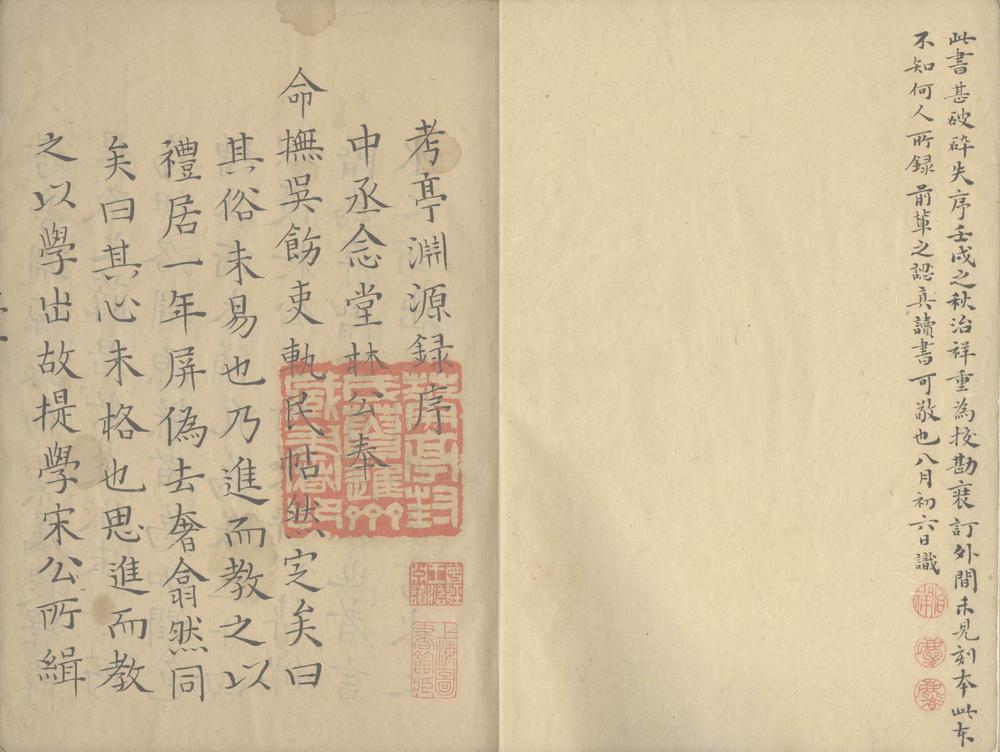 此書甚破碎失序壬戌之秋治祥重為挍勘裝訂外間未見刻本此本
不知何人所録前輩之認真讀書可敬也八月初六日識
考亭淵源録序
中丞念堂林公奉
命撫吳飭吏軌民帖然定矣曰
其俗未易也乃進而教之以
禮居一年屏偽去奢翕然同
矣曰其心未格也思進而教
之以學出故提學宋公所緝
上海圖書館藏